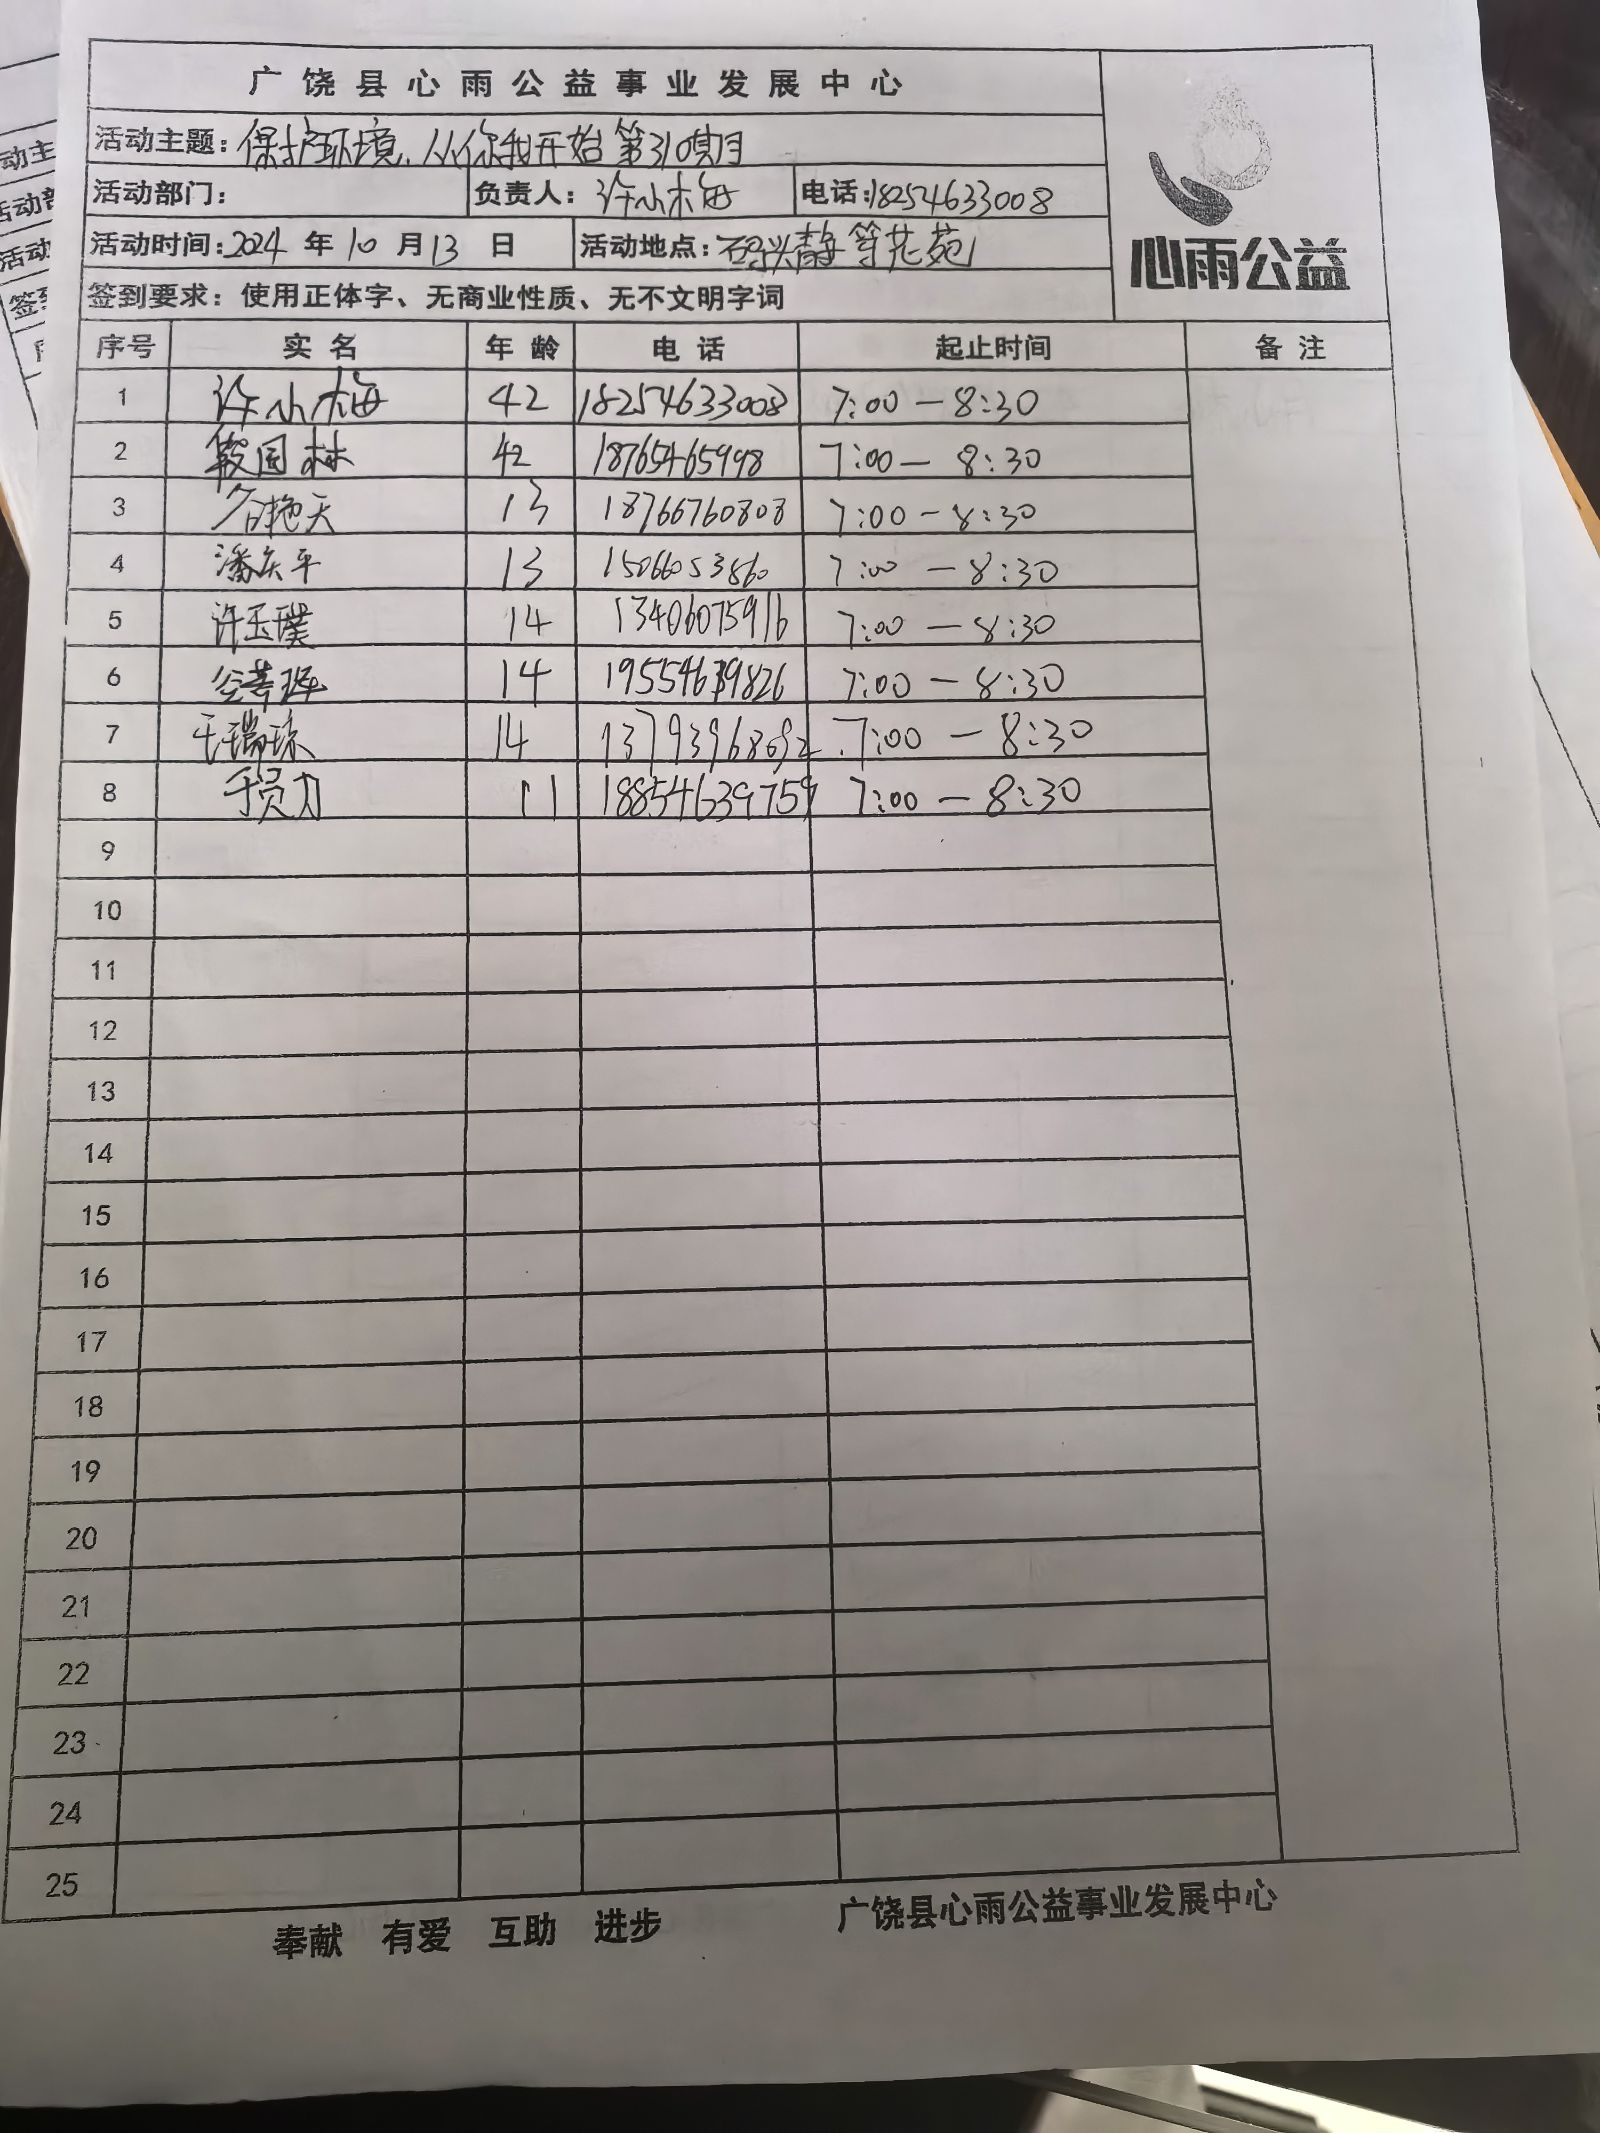 广饶县心雨公益事业发展中心
活动主题：保护环境，从你我开始 第310期
活动部门： 负责人：许小梅 电话：18254633008
活动时间：2024年10月13日 活动地点：
心雨公益
签到要求：使用正体字、无商业性质、无不文明字词
序号 实名 年龄 电话 起止时间 备注
1 许小梅 42 18254633008 7:00—8:30
2 42 18765465998 7:00—8:30
3 13 18766760808 7:00—8:30
4 潘庆平 13 15066053860 7:00—8:30
5 许玉璞 14 13406075916 7:00—8:30
6 14 7:00—8:30
7 14 13793968692 7:00—8:30
8 11 18854639759 7:00—8:30
9
10
11
12
13
14
15
16
17
18
19
20
21
22
23
24
25
奉献 有爱 互助 进步 广饶县心雨公益事业发展中心